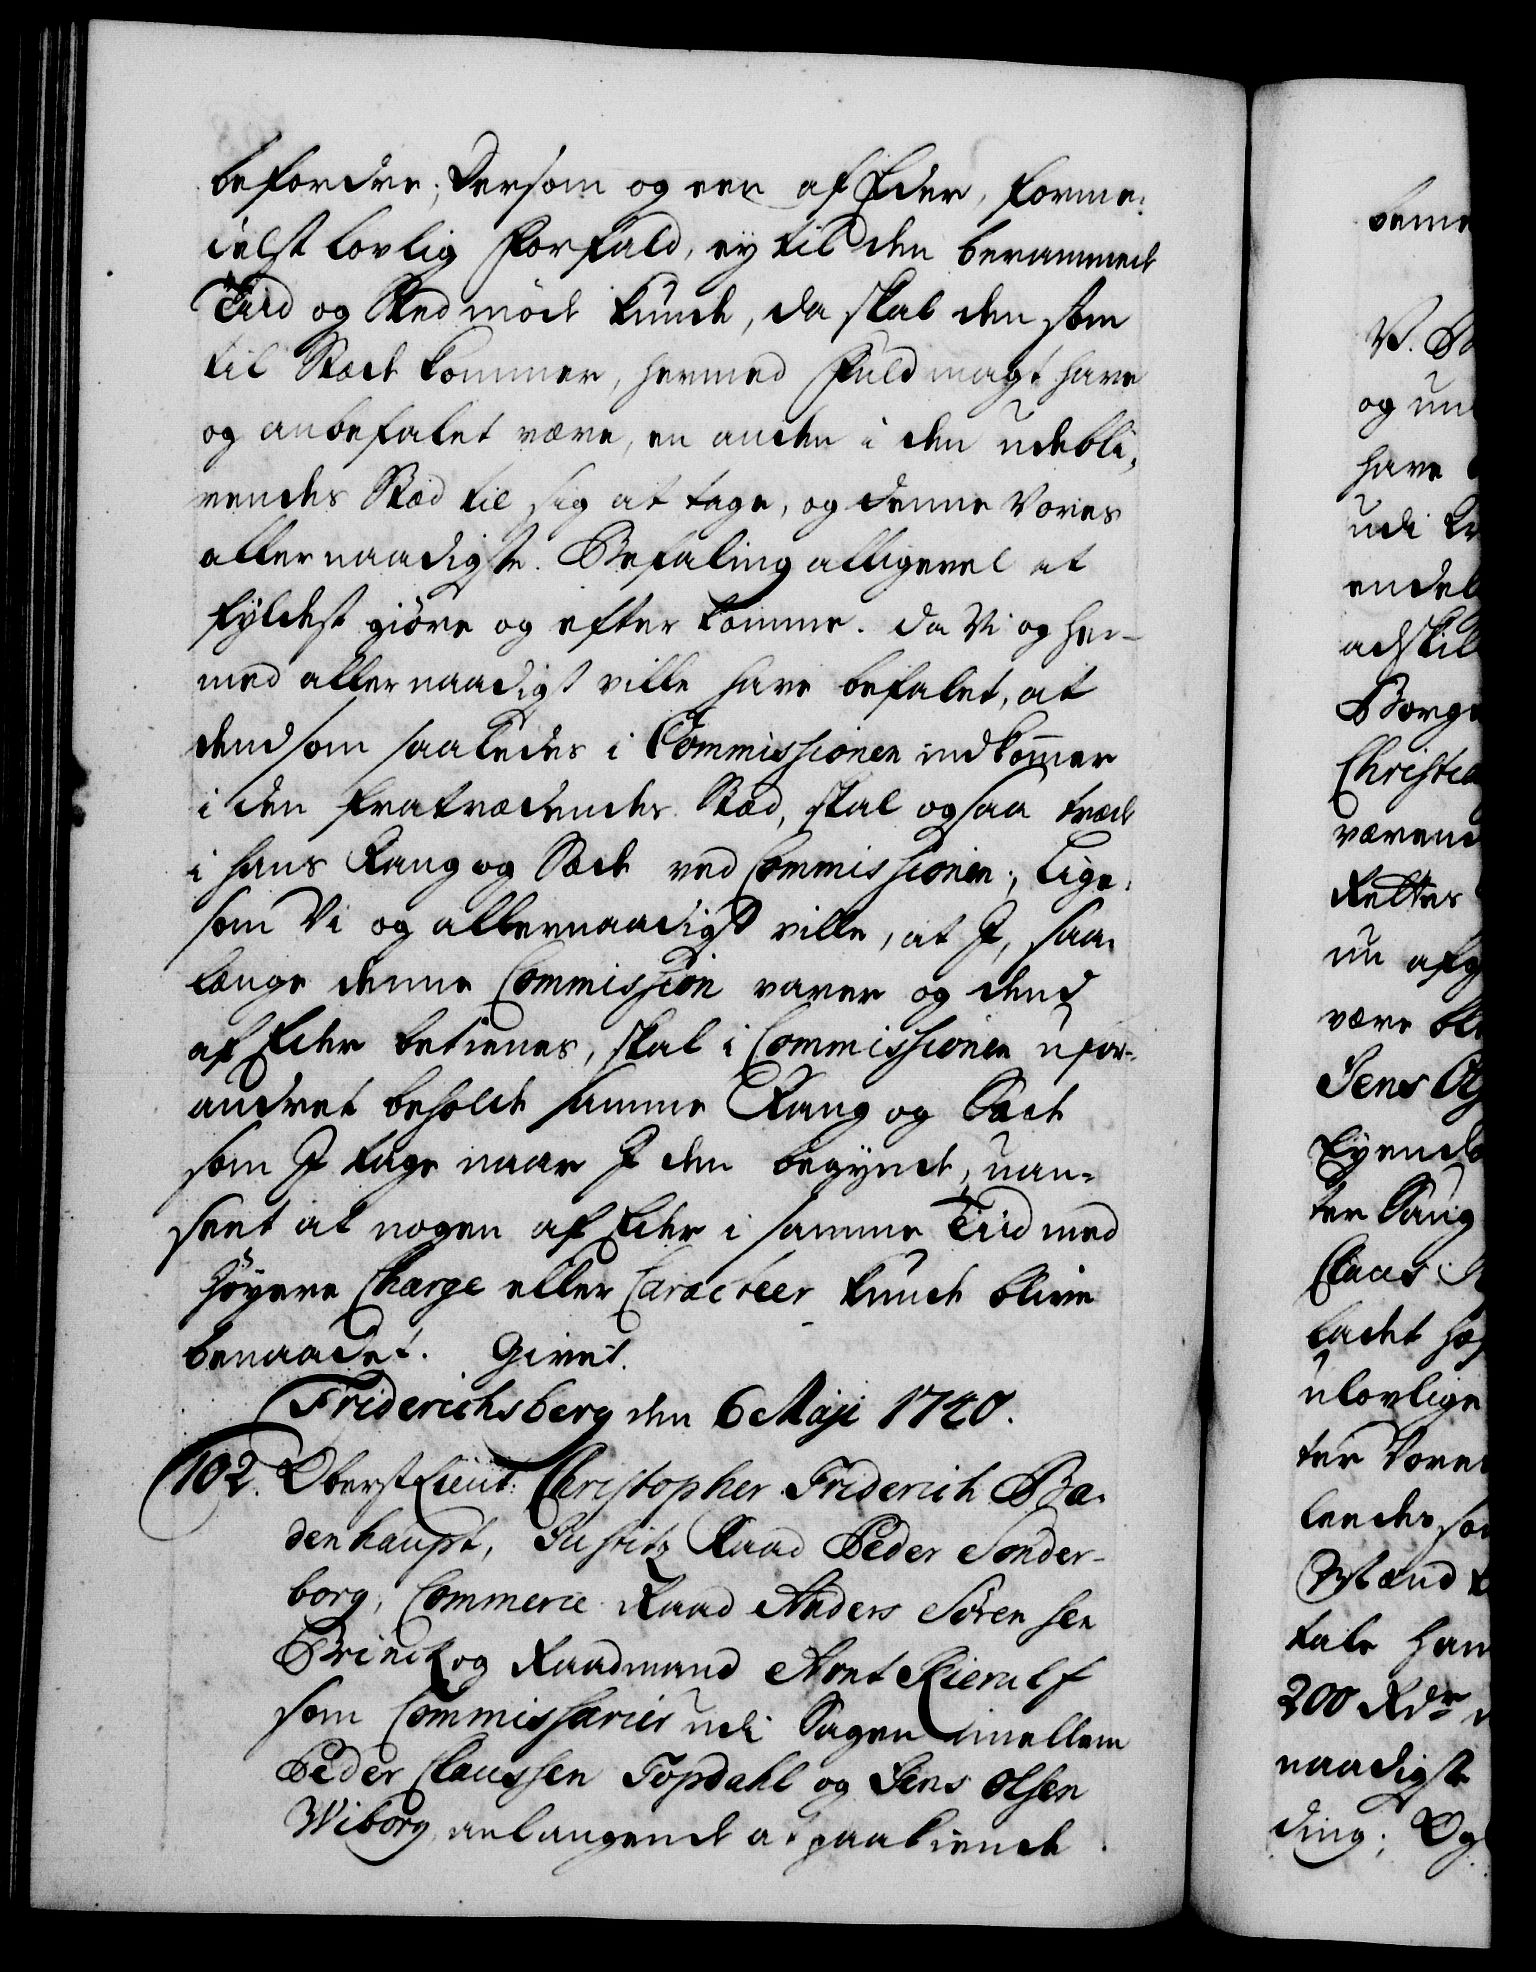 befordre; Dersom og een af Eder, forme:
ielst lovlig Forfald, ey til den berammede
Tiid og Sted møde kunde, da skal den som
til Stæde kommer, hermed Fuldmagt have
og anbefalet være, en anden i den udebli,
vendes Stæd til sig at tage, og denne Vores
allernaadigste Befaling alligevel at
fyldest giøre og efterkomme. Da Vi og her-
med allernaadigst ville have befalet, at
dend som saaledes i Commissionen indkommer
i den fratrædendes Stæd, skal ogsaa træde
i hans Rang og Sæde ved Commissionen, lige:
som Vi og allernaadigst ville, at I, saa-
længe denne Commission varer og dend
af Eder betienes, skal i Commissionen ufor-
andret beholde samme Rang og Sæde
som I tage naar I den begynde, uan-
seet at nogen af Eder i samme Tiid med
høyere Charge eller Caracteer kunde blive
benaadet. Givet.
Friderichsberg den 6 Maji 1740.
102. Oberst Lieut: Christopher Friderich Ba-
denhaupt, Justitz Raad Peder Sonder-
borg, Commerce Raad Anders Sørensen
Brinck og Raadmand Arnt Kierulf
som Commissarier udi Sagen imellem
Peder Claussen Topdahl og Jens Olsen
Wiborg anlangende at paakiende
V.
og
have
udi
adskil
Borge
Christia
værend
Rettes
nu
være
Jens
ter
Claus
ladet
ulovlige
ter Vores
Mænd
tale ham
200 Rdr
naadigste
ding; Og